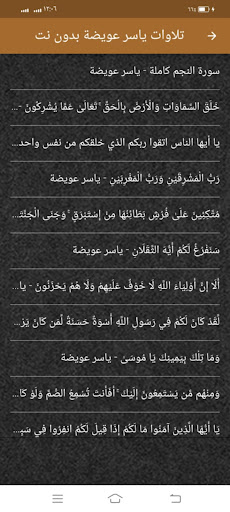 ١٢:٠٦
٦٦٪
تلاوات ياسر عويضة بدون نت
سورة النجم كاملة - ياسر عويضة
خَلَقَ السَّمَاوَاتِ وَالْأَرْضَ بِالْحَقِّ ۚ تَعَالَىٰ عَمَّا يُشْرِكُونَ -...
يا أيها الناس اتقوا ربكم الذي خلقكم من نفس واحد...
رَبُّ الْمَشْرِقَيْنِ وَرَبُّ الْمَغْرِبَيْنِ - ياسر عويضة
مُتَّكِئِينَ عَلَىٰ فُرُشٍ بَطَائِنُهَا مِنْ إِسْتَبْرَقٍ ۚ وَجَنَى الْجَنَّتَ...
سَنَفْرُغُ لَكُمْ أَيُّهَ الثَّقَلَانِ - ياسر عويضة
أَلَا إِنَّ أَوْلِيَاءَ اللَّهِ لَا خَوْفٌ عَلَيْهِمْ وَلَا هُمْ يَحْزَنُونَ - يا...
لَقَدْ كَانَ لَكُمْ فِي رَسُولِ اللَّهِ أُسْوَةٌ حَسَنَةٌ لِمَن كَانَ يَرْ...
وَمَا تِلْكَ بِيَمِينِكَ يَا مُوسَىٰ - ياسر عويضة
وَمِنْهُم مَّن يَسْتَمِعُونَ إِلَيْكَ ۚ أَفَأَنتَ تُسْمِعُ الصُّمَّ وَلَوْ كَا...
يَا أَيُّهَا الَّذِينَ آمَنُوا مَا لَكُمْ إِذَا قِيلَ لَكُمُ انفِرُوا فِي سَبِ...